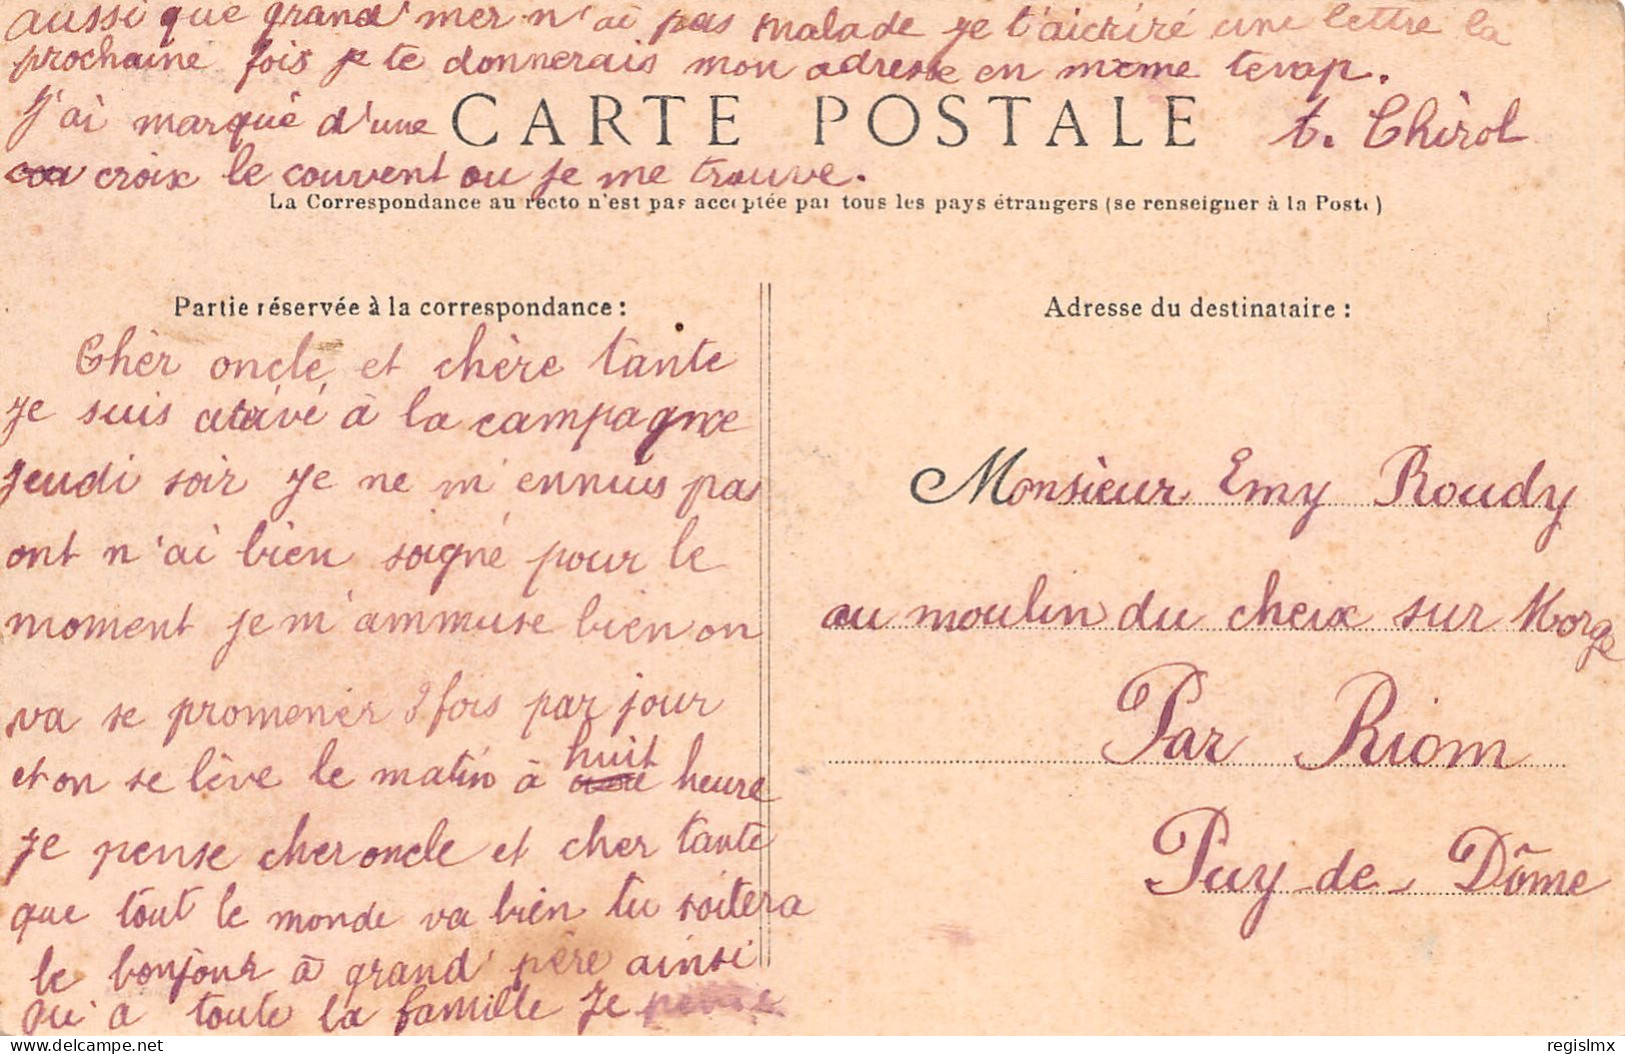 aussi que grand' mer n'ai pas malade je t'aicriré une lettre la
prochaine fois je te donnerais mon adresse en meme
J'ai marqué d'une
CARTE POSTALE
t. Chirol
croix le couvent ou je me trouve.
La Correspondance au recto n'est pas acceptée par tous les pays étrangers (se renseigner à la Poste)
Partie réservée à la correspondance :
Chèr oncle et chère tante
je suis à la campagne
jeudi soir je ne m'ennuis pas
ont n'ai bien soigné pour le
moment je m'ammuse bien on
va se promener 2 fois par jour
et on se lève le matin à huit heure
je pense cher oncle et cher tante
que tout le monde va bien tu soitera
le bonjour à grand' père ainsi
qu'a toute la famille je pense
Adresse du destinataire :
Monsieur Emy Roudy
au moulin du cheix sur Morge
Par Riom
Puy-de-Dôme
delcampe.net
regislmx